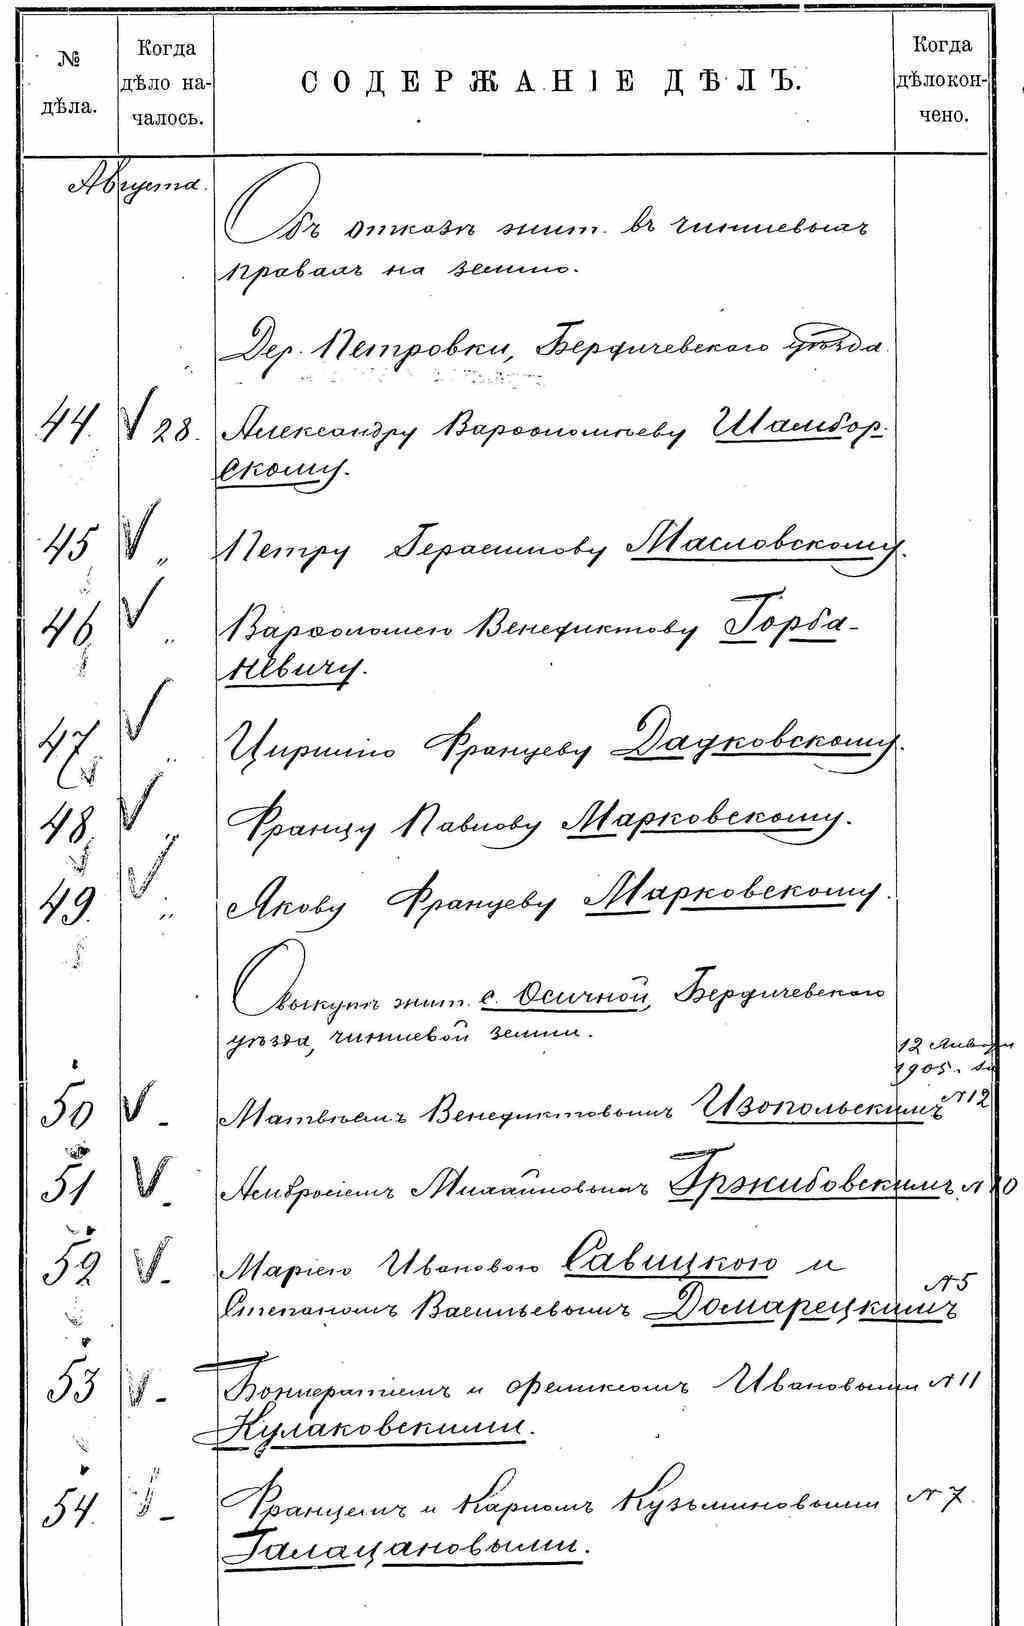 № дѣла.
Когда дѣло началось.
СОДЕРЖАНІЕ ДѢЛЪ.
Когда дѣло кончено.
Августа.
Объ отказѣ жит. въ чиншевыхъ
правахъ на землю.
Дер. Петровки, Бердичевскаго уѣзда.
44. V 28. Александру Варѳоломѣеву Шамбор-
скому.
45 V „ Петру Герасимову Масловскому.
46 V „ Варѳоломею Венедиктову Горба-
невичу.
47 V „ Францеву Дадковскому.
48 V „ Францу Павлову Марковскому.
49. V „ Якову Францеву Марковскому.
О выкупѣ жит. с. Осичной, Бердичевскаго
уѣзда, чиншевой земли.
12 Января
1905. за
50 V - Матвѣемъ Венедиктовымъ Изопольскимъ №12
51 V - Амвросіемъ Михайловымъ Гржибовскимъ №10
52 V - Маріею Ивановою Савицкою и
Степаномъ Васильевымъ Домарецкимъ №5
53 V - Бонифатіемъ и Феликсомъ Ивановыми №11
Кулаковскими.
54. V - Францемъ и Карломъ Кузьминовыми №7.
Галацановыми.